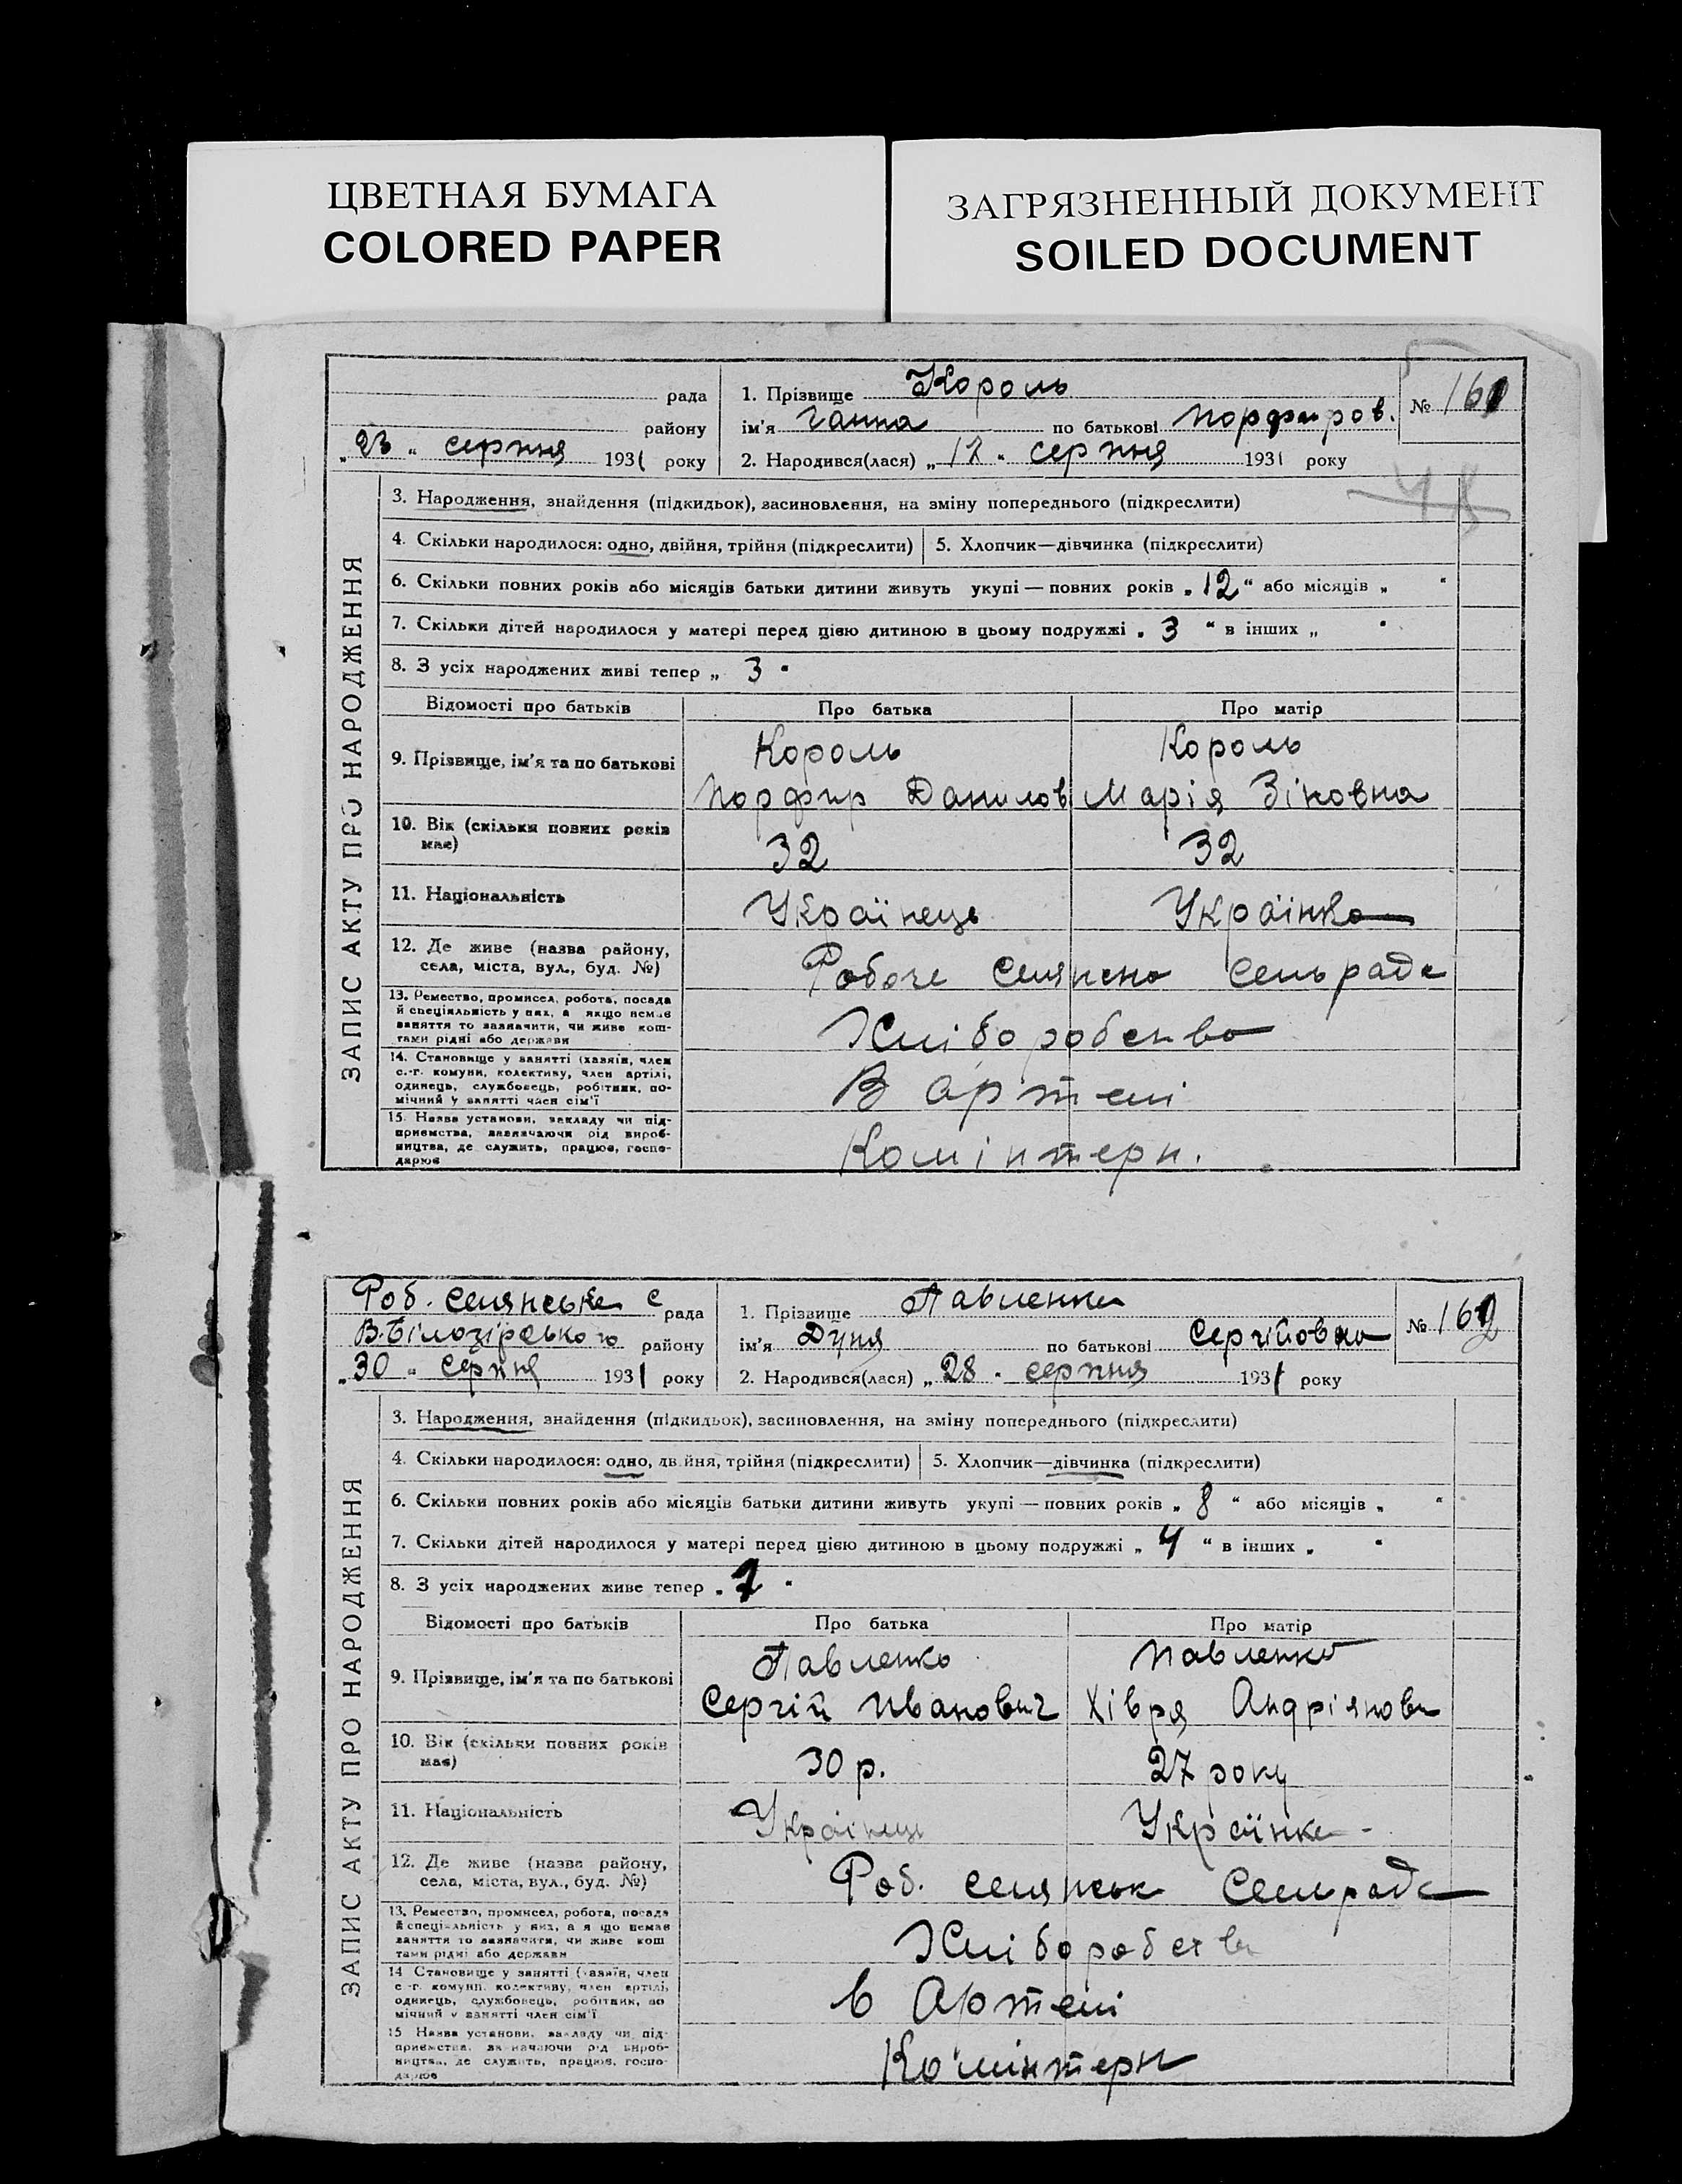 ЦВЕТНАЯ БУМАГА
COLORED PAPER
ЗАГРЯЗНЕННЫЙ ДОКУМЕНТ
SOILED DOCUMENT
рада
району
„23“ серпня 1931 року
1. Прізвище Король
ім'я Ганна по батькові Порфиров.
2. Народився(лася) „12“ серпня 1931 року
№ 161
48
ЗАПИС АКТУ ПРО НАРОДЖЕННЯ
3. Народження, знайдення (підкидьок), засиновлення, на зміну попереднього (підкреслити)
4. Скільки народилося: одно, двійня, трійня (підкреслити) 5. Хлопчик—дівчинка (підкреслити)
6. Скільки повних років або місяців батьки дитини живуть укупі — повних років „12“ або місяців „ “
7. Скільки дітей народилося у матері перед цією дитиною в цьому подружжі „3“ в інших „ “
8. З усіх народжених живі тепер „3“
Відомості про батьків Про батька Про матір
9. Прізвище, ім'я та по батькові
Король Король
Порфир Данилов Марія Зіновна
10. Вік (скільки повних років має)
32 32
11. Національність Українець Українка
12. Де живе (назва району, села, міста, вул., буд. №)
Робоче Селянсна Сельрада
13. Ремество, промисел, робота, посада й спеціяльність у них, а якщо немає заняття то зазначити, чи живе коштами рідні або держави
Хліборобство
14. Становище у занятті (хазяїн, член с.-г. комуни, колективу, член артілі, одинець, службовець, робітник, помічний у занятті член сім'ї
В артелі
15. Назва установи, закладу чи підприємства, зазначаючи рід виробництва, де служить, працює, господарює
Комінтерн.
Роб. селянське с рада
В.Білозірського району
„30“ серпня 1931 року
1. Прізвище Павленко
ім'я Дуня по батькові Сергійовна
2. Народився(лася) „28“ серпня 1931 року
№ 162
ЗАПИС АКТУ ПРО НАРОДЖЕННЯ
3. Народження, знайдення (підкидьок), засиновлення, на зміну попереднього (підкреслити)
4. Скільки народилося: одно, двійня, трійня (підкреслити) 5. Хлопчик—дівчинка (підкреслити)
6. Скільки повних років або місяців батьки дитини живуть укупі — повних років „8“ або місяців „ “
7. Скільки дітей народилося у матері перед цією дитиною в цьому подружжі „4“ в інших „ “
8. З усіх народжених живе тепер „ “
Відомості про батьків Про батька Про матір
9. Прізвище, ім'я та по батькові
Павленко Павленко
Сергій Иванович Хівря Андріянови
10. Вік (скільки повних років має)
30 р. 27 року
11. Національність Українець Українка
12. Де живе (назва району, села, міста, вул., буд. №)
Роб. селянськ Селрада
13. Ремество, промисел, робота, посада й спеціяльність у них, а якщо немає заняття то зазначити, чи живе коштами рідні або держави
Хліборобства
14. Становище у занятті (хазяїн, член с.-г. комуни, колективу, член артілі, одинець, службовець, робітник, помічний у занятті член сім'ї
в Артелі
15. Назва установи, закладу чи підприємства, зазначаючи рід виробництва, де служить, працює, господарює
Комінтерн